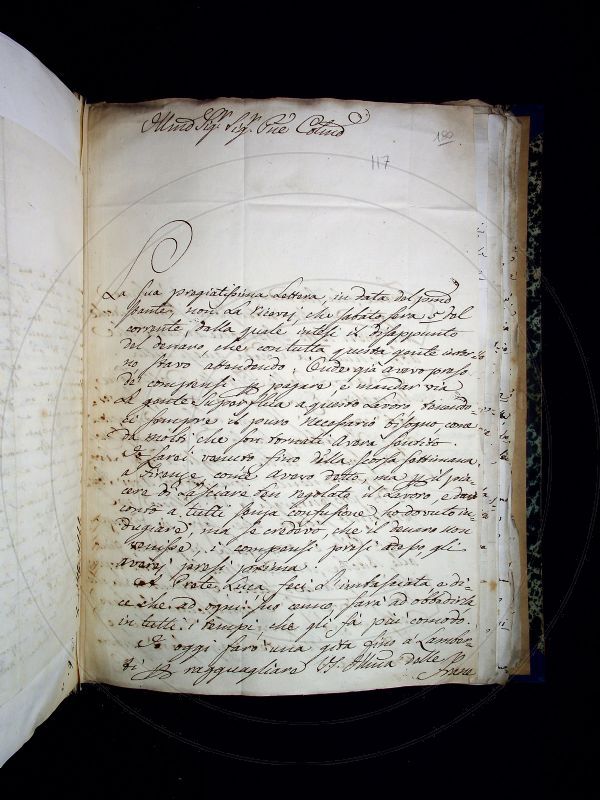 Illmo Sig.r Sig.r Pne Colmo
180
117
La Sua pregiatissima Lettera, in data del primo
stante, non La ricevej che sabato sera 5 del
corrente, dalla quale intesi il disappunto
del denaro, che con tutta questa gente intor-
no stavo attendendo; Onde già avevo preso
de compensi p pagare, e mandar via
La gente Superflua a questo Lavoro tenendo-
ci sempre il puro necessario bisogno, come
da molti che son tornati averà sentito.
Io sarei venuto fino dalla scorsa settimana
a Firenze come avevo detto, ma p il pia-
cere di Lasciare ben regolato il Lavoro, e dare
conto a tutti senza confusione, ho dovuto in-
dugiare, ma se credevo, che il denaro non
venisse, i compensi presi adesso gli
averej presi prima.
Al Prete Luca feci l'imbasciata e di-
ce che ad ogni suo cenno, sarà ad obbedirla
in tutti i tempi, che gli fà più comodo.
Io oggi farò una gita fino a Lamber-
ti p ragguagliare VS. Illma dalle